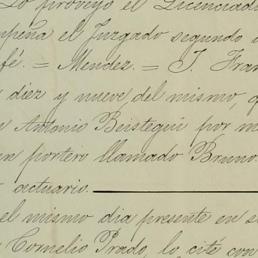 Lo proveyó el Licenciado
mpeña el Juzgado segundo
fé. = Mendez. = J. Fran
diez y nueve del mismo, q
Antonio Beistegui por m
un portero llamado Bruno
actuario.
el mismo dia presente en s
Cornelio Prado, lo cité con